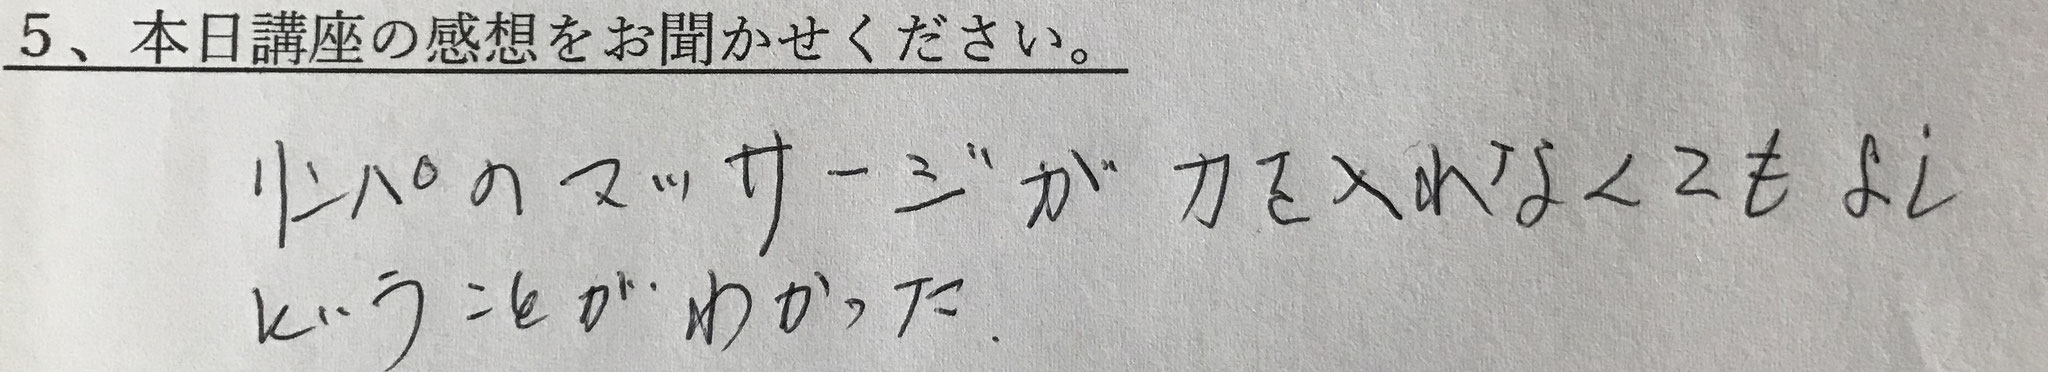 5、本日講座の感想をお聞かせください。
リンパのマッサージが力を入れなくてもよし
ということがわかった.